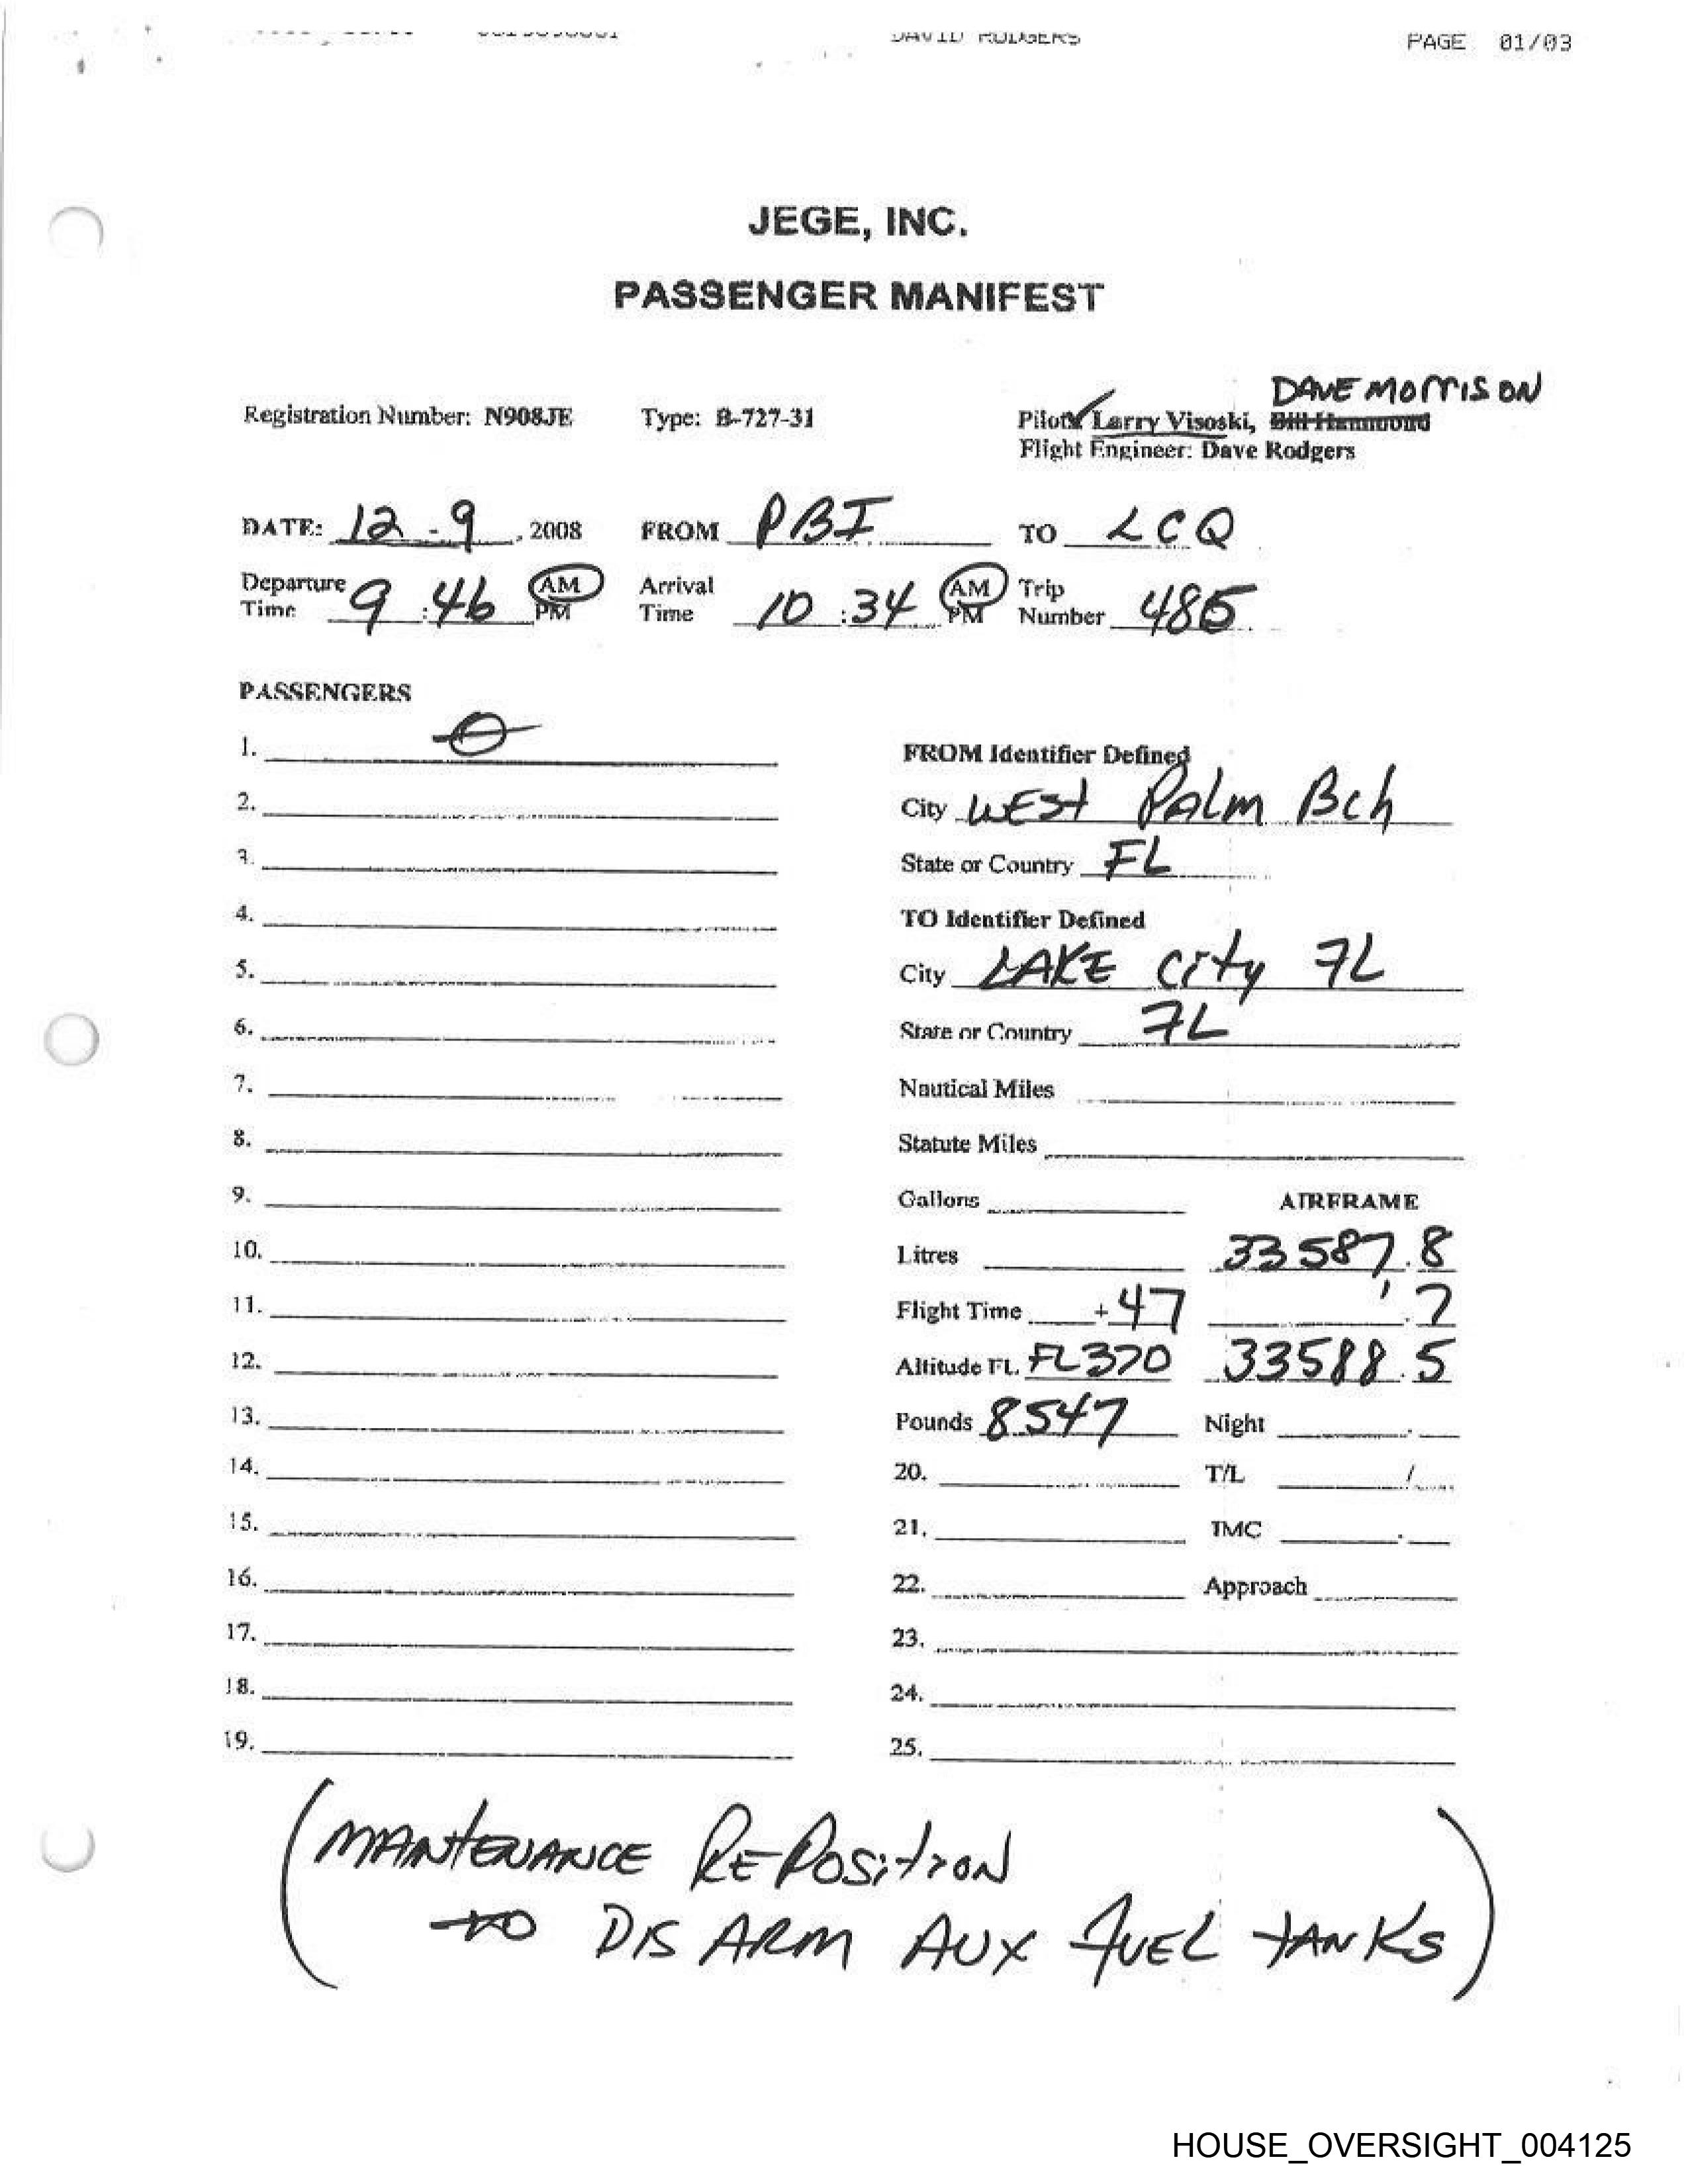 DAVID RODGERS PAGE 01/03
JEGE, INC.
PASSENGER MANIFEST
DAVE MORRISON
Registration Number: N908JE Type: B-727-31 Pilots Larry Visoski, Bill Hammond
Flight Engineer: Dave Rodgers
DATE: 12-9, 2008 FROM PBI TO LCQ
Departure Time 9:46 AM PM Arrival Time 10:34 AM PM Trip Number 485
PASSENGERS
1. 0
2.
3.
4.
5.
6.
7.
8.
9.
10.
11.
12.
13.
14.
15.
16.
17.
18.
19.
FROM Identifier Defined
City WEST PALM Bch
State or Country FL
TO Identifier Defined
City LAKE City FL
State or Country FL
Nautical Miles
Statute Miles
Gallons AIRFRAME
Litres 33587.8
Flight Time +47 .7
Altitude FL FL370 33588.5
Pounds 8547 Night .
20. T/L /
21. IMC .
22. Approach
23.
24.
25.
(MANTENANCE REPOSITION
TO DISARM AUX FUEL TANKS)
HOUSE_OVERSIGHT_004125